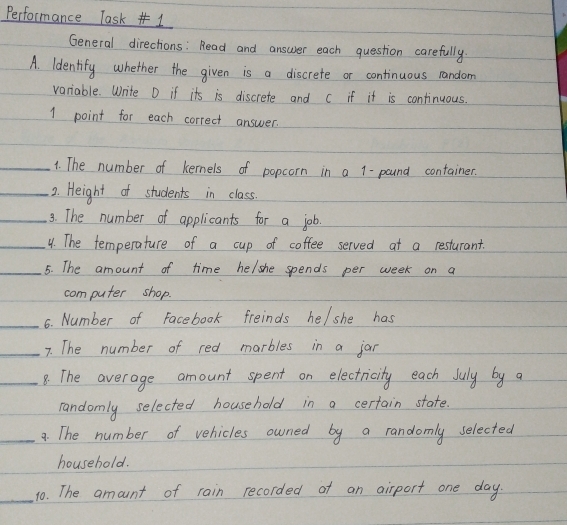 Performance Task # 1
General directions: Read and answer each question carefully.
A. Identify whether the given is a discrete or continuous random
variable. Write D if its is discrete and C if it is continuous.
1 point for each correct answer.
____1. The number of kernels of popcorn in a 1-pound container.
____2. Height of students in class.
____3. The number of applicants for a job.
____4. The temperature of a cup of coffee served at a resturant.
____5. The amount of time he/she spends per week on a
computer shop.
____6. Number of Facebook freinds he/she has
____7. The number of red marbles in a jar
____8. The average amount spent on electricity each July by a
randomly selected household in a certain state.
____9. The number of vehicles owned by a randomly selected
household.
____10. The amount of rain recorded at an airport one day.